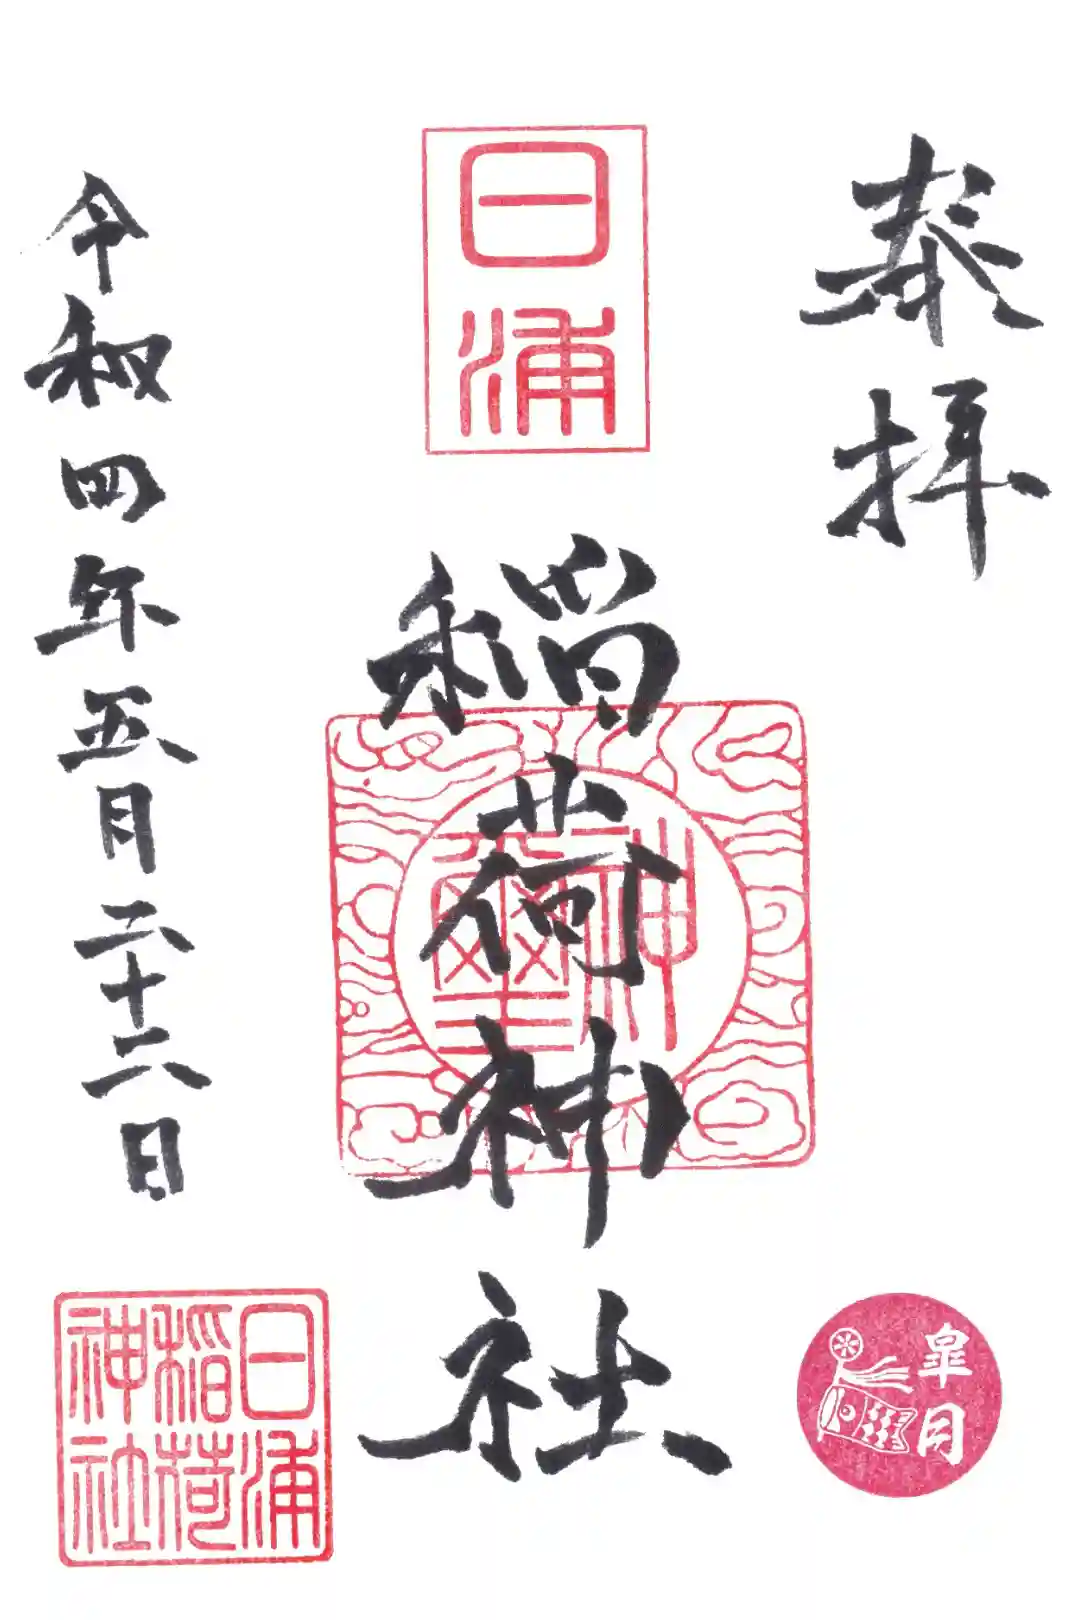 奉拝
日浦
稲荷神社
神璽
令和四年五月二十二日
日浦
稲荷
神社
皐月